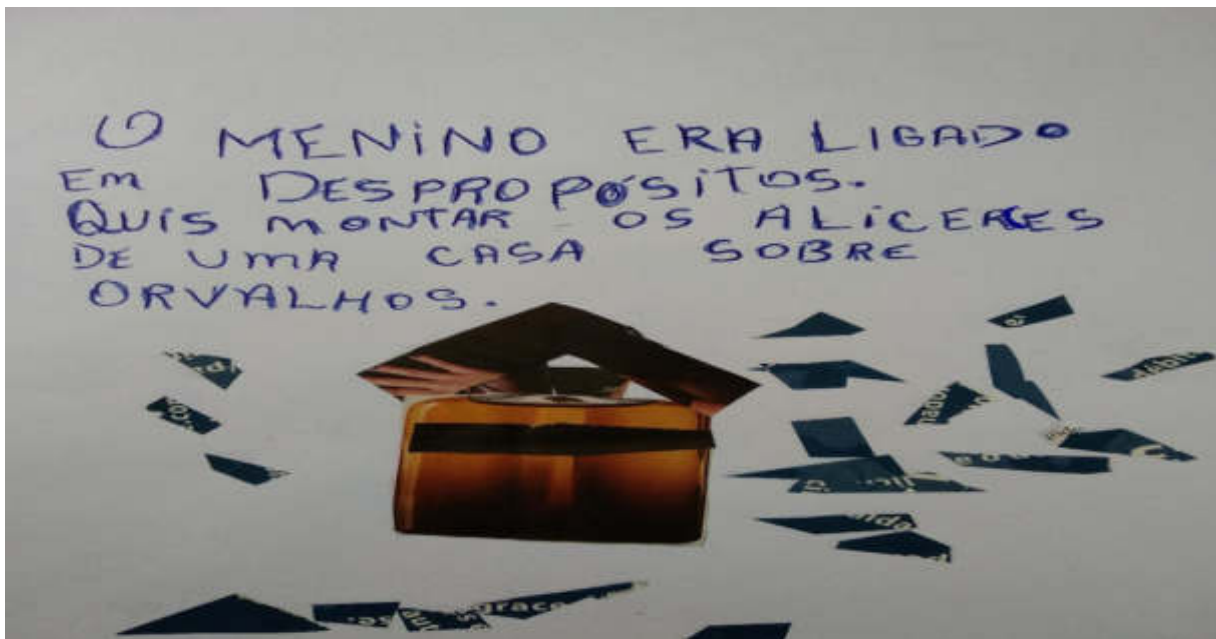 O MENINO ERA LIGADO
EM DESPROPÓSITOS.
QUIS MONTAR OS ALICERCES
DE UMA CASA SOBRE
ORVALHOS.
grace